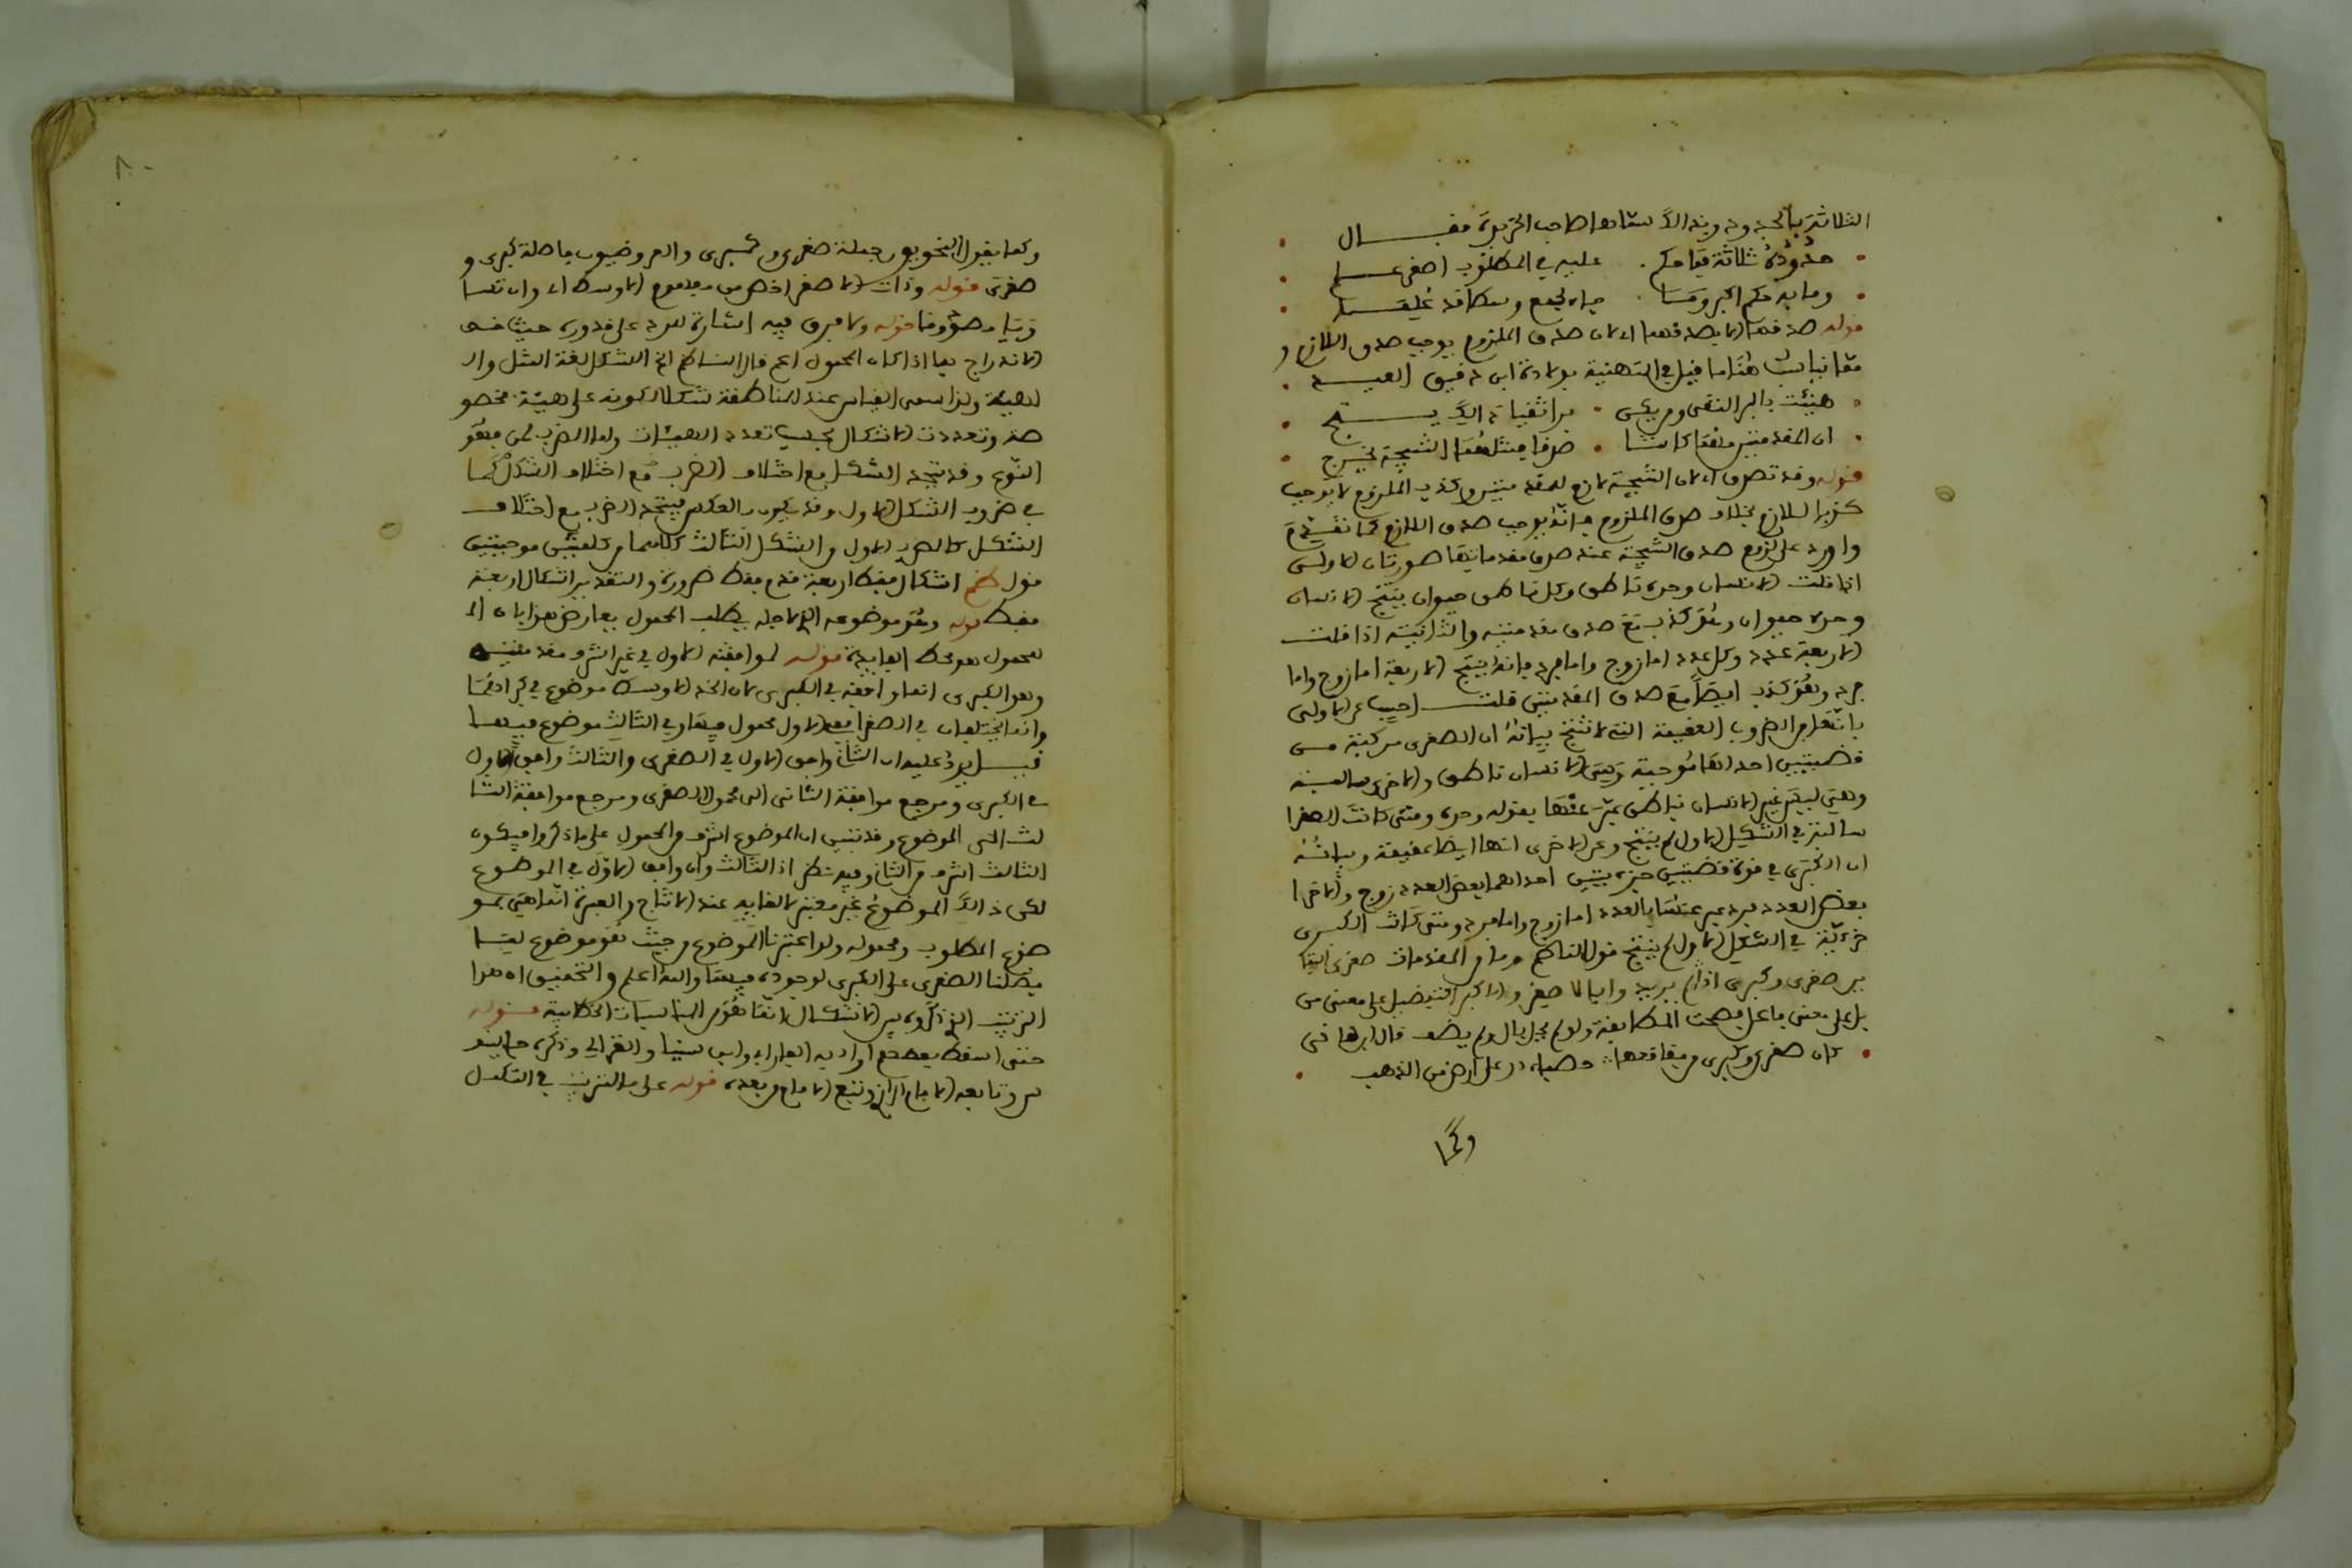 الثلاثة بالحدود وبذالك سماها صاحب الجزيرية فقال
حدوده ثلاثة فيا حكم عليه في المطلوب اصغر علما
وما به حكم اكبر وسما جاء لجمع وسطا قد علما
قوله صدقهما لا يصدقهما اي لان صدق الملزوم يوجب صدق اللازم و
مما يناسب هنا ما قيل في التهنية بولادة ابن دقيق العيد
هنيئت بالبر التقي ومن يكن براثقيا ذاك ينتج
ان المقدمتين مهما كانتا صدقا فمثلهما النتيجة تخرج
قوله وقد تصدق اي لان النتيجة لازم للمقدمتين وكذب الملزوم لا يوجب
كذب اللازم بخلاف صدق الملزوم فانه يوجب صدق اللازم كما تقدم
واورد على لزوم صدق النتيجة عند صدق مقدماتها صورتان الاولى
اذا قلت الانسان وحده ناطق وكل ناطق حيوان ينتج الانسان
وحده حيوان وهو كذب مع صدق مقدمتيه والثانية اذا قلت
الاربعة عدد وكل عدد اما زوج واما فرد فانه ينتج الاربعة اما زوج واما
فرد وهو كذب ايضا مع صدق المقدمتين قلت اجيب عن الاولى
بانها من الضروب العقيمة التي لا تنتج بيانه ان الصغرى مركبة من
قضيتين احداهما موجبة وهي الانسان ناطق والاخرى سالبة
وهي ليس غير الانسان بناطق عبر عنها بقوله وحده ومتى كانت الصغرا
سالبة في الشكل الاول لم ينتج وعن الاخرى انها ايضا عقيمة وبيانه
ان الكبرى في قوة قضيتين جزءيتين احداهما بعض العدد زوج والاخرا
بعض العدد فرد عبر عنهما بالعدد اما زوج واما فرد ومتى كانت الكبرى
جزءية في الشكل الاول لم ينتج قول الناظم وما من المقدمات صغرى البيتا
ين صغرى وكبرى اذا لم يريد وابالاصغر والاكبر التفضيل على معنى من
بل على معنى فاعل فصحت المطابقة ولو لم يحل بال ولم يضف قال ابن هاني
كان صغرى وكبرى من فقاقعها حصباء در على ارض من الذهب
وكما
وكما يقول النحويون جملة صغرى وكبرى والعروضيون فاصلة كبرى و
صغرى قوله وذات الاصغر اخص من مفهوم الاوسط اي وان تسا
ويا مصدوقا قوله ولا فرق فيه اشارة للرد على قدوره حيث خص
الاندراج بما اذا كان المحمول اعم قال الناظم الخ الشكل لغة المثل وال
الهيئة ولذا سمى القياس عند المناطقة شكلا لكونه على هيئة مخصو
صة وتعددت الاشكال بحسب تعدد الهيئات واما الضرب لغة فهو
النوع وقد يتحد الشكل مع اختلاف الضرب مع اختلاف الشكل كما
في ضروب الشكل الاول وقد يكون بالعكس فيتحد الضرب مع اختلاف
الشكل كالضرب الاول من الشكل الثالث كلاهما من كليتين موجبتين
قول ظم اشكال فقط اربعة قدم فقط ضرورة والتقدير اشكال اربعة
فقط قوله وهو موضوعه الذي لاجله يطلب المحمول يعارض هذا بان ال
محمول هو محط الفايدة قوله لموافقته الاول في غير اشرف مقدمتيه
وهو الكبرى انما وافقه في الكبرى لان الحد الاوسط موضوع في كبراهما
وانما يختلفان في الصغرا ففي الاول محمول فيها وفي الثالث موضوع فيهما
قيل يرد عليه ان الثاني وافق الاول في الصغرى والثالث وافق الاول
في الكبرى ومرجع موافقة الثاني الى محمول الصغرى ومرجع موافقة الثا
لث الى الموضوع وقد تبين ان الموضوع اشرف من المحمول على ما ذكروا فيكون
الثالث اشرف من الثاني وفيه نظر اذ الثالث وان وافق الاول في الموضوع
لكن ذالك الموضوع غير معتبر لالغايه عند الانتاج والعبرة انما هي بمو
ضوع المطلوب ومحموله ولو اعتبرنا الموضوع من حيث هو موضوع لما
فضلنا الصغرى على الكبرى لوجوده فيهما والله اعلم والتحقيق ان هذا
الترتيب الذي ذكروه بين الاشكال انما هو من المناسبات الخطابية قوله
حتى اسقط بعضهم اراد به الفارابي وابن سينا والغزالي وذكره جالينو
س وتابعه الامام الرازي وتبع الامام من بعده قوله على ما الترتيب في التكمل